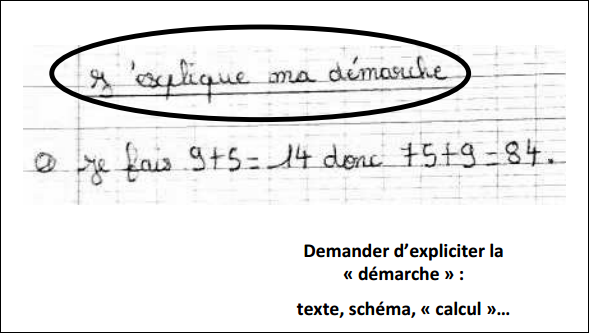 J'explique ma démarche
a je fais 9+5=14 donc 75+9=84.
Demander d'expliciter la
« démarche » :
texte, schéma, « calcul »...